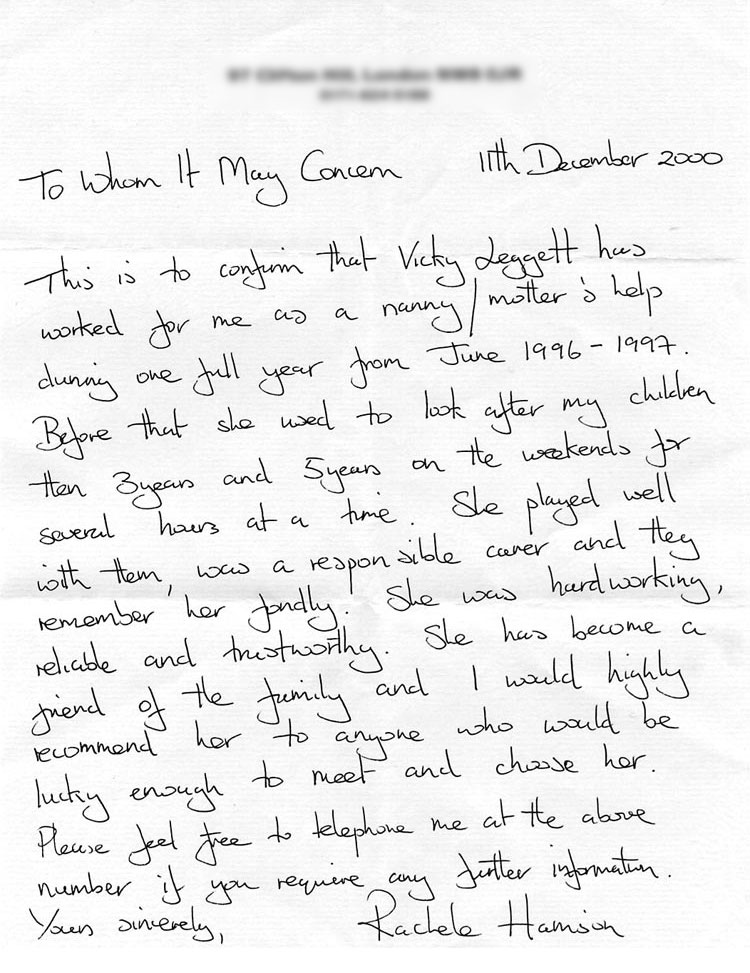 To Whom It May Concern 11th December 2000
This is to confirm that Vicky Leggett has
worked for me as a nanny/mother's help
during one full year from June 1996 - 1997.
Before that she used to look after my children
then 3years and 5years on the weekends for
several hours at a time. She played well
with them, was a responsible carer and they
remember her fondly. She was hardworking,
reliable and trustworthy. She has become a
friend of the family and I would highly
recommend her to anyone who would be
lucky enough to meet and choose her.
Please feel free to telephone me at the above
number if you require any further information.
Yours sincerely, Rachele Harrison